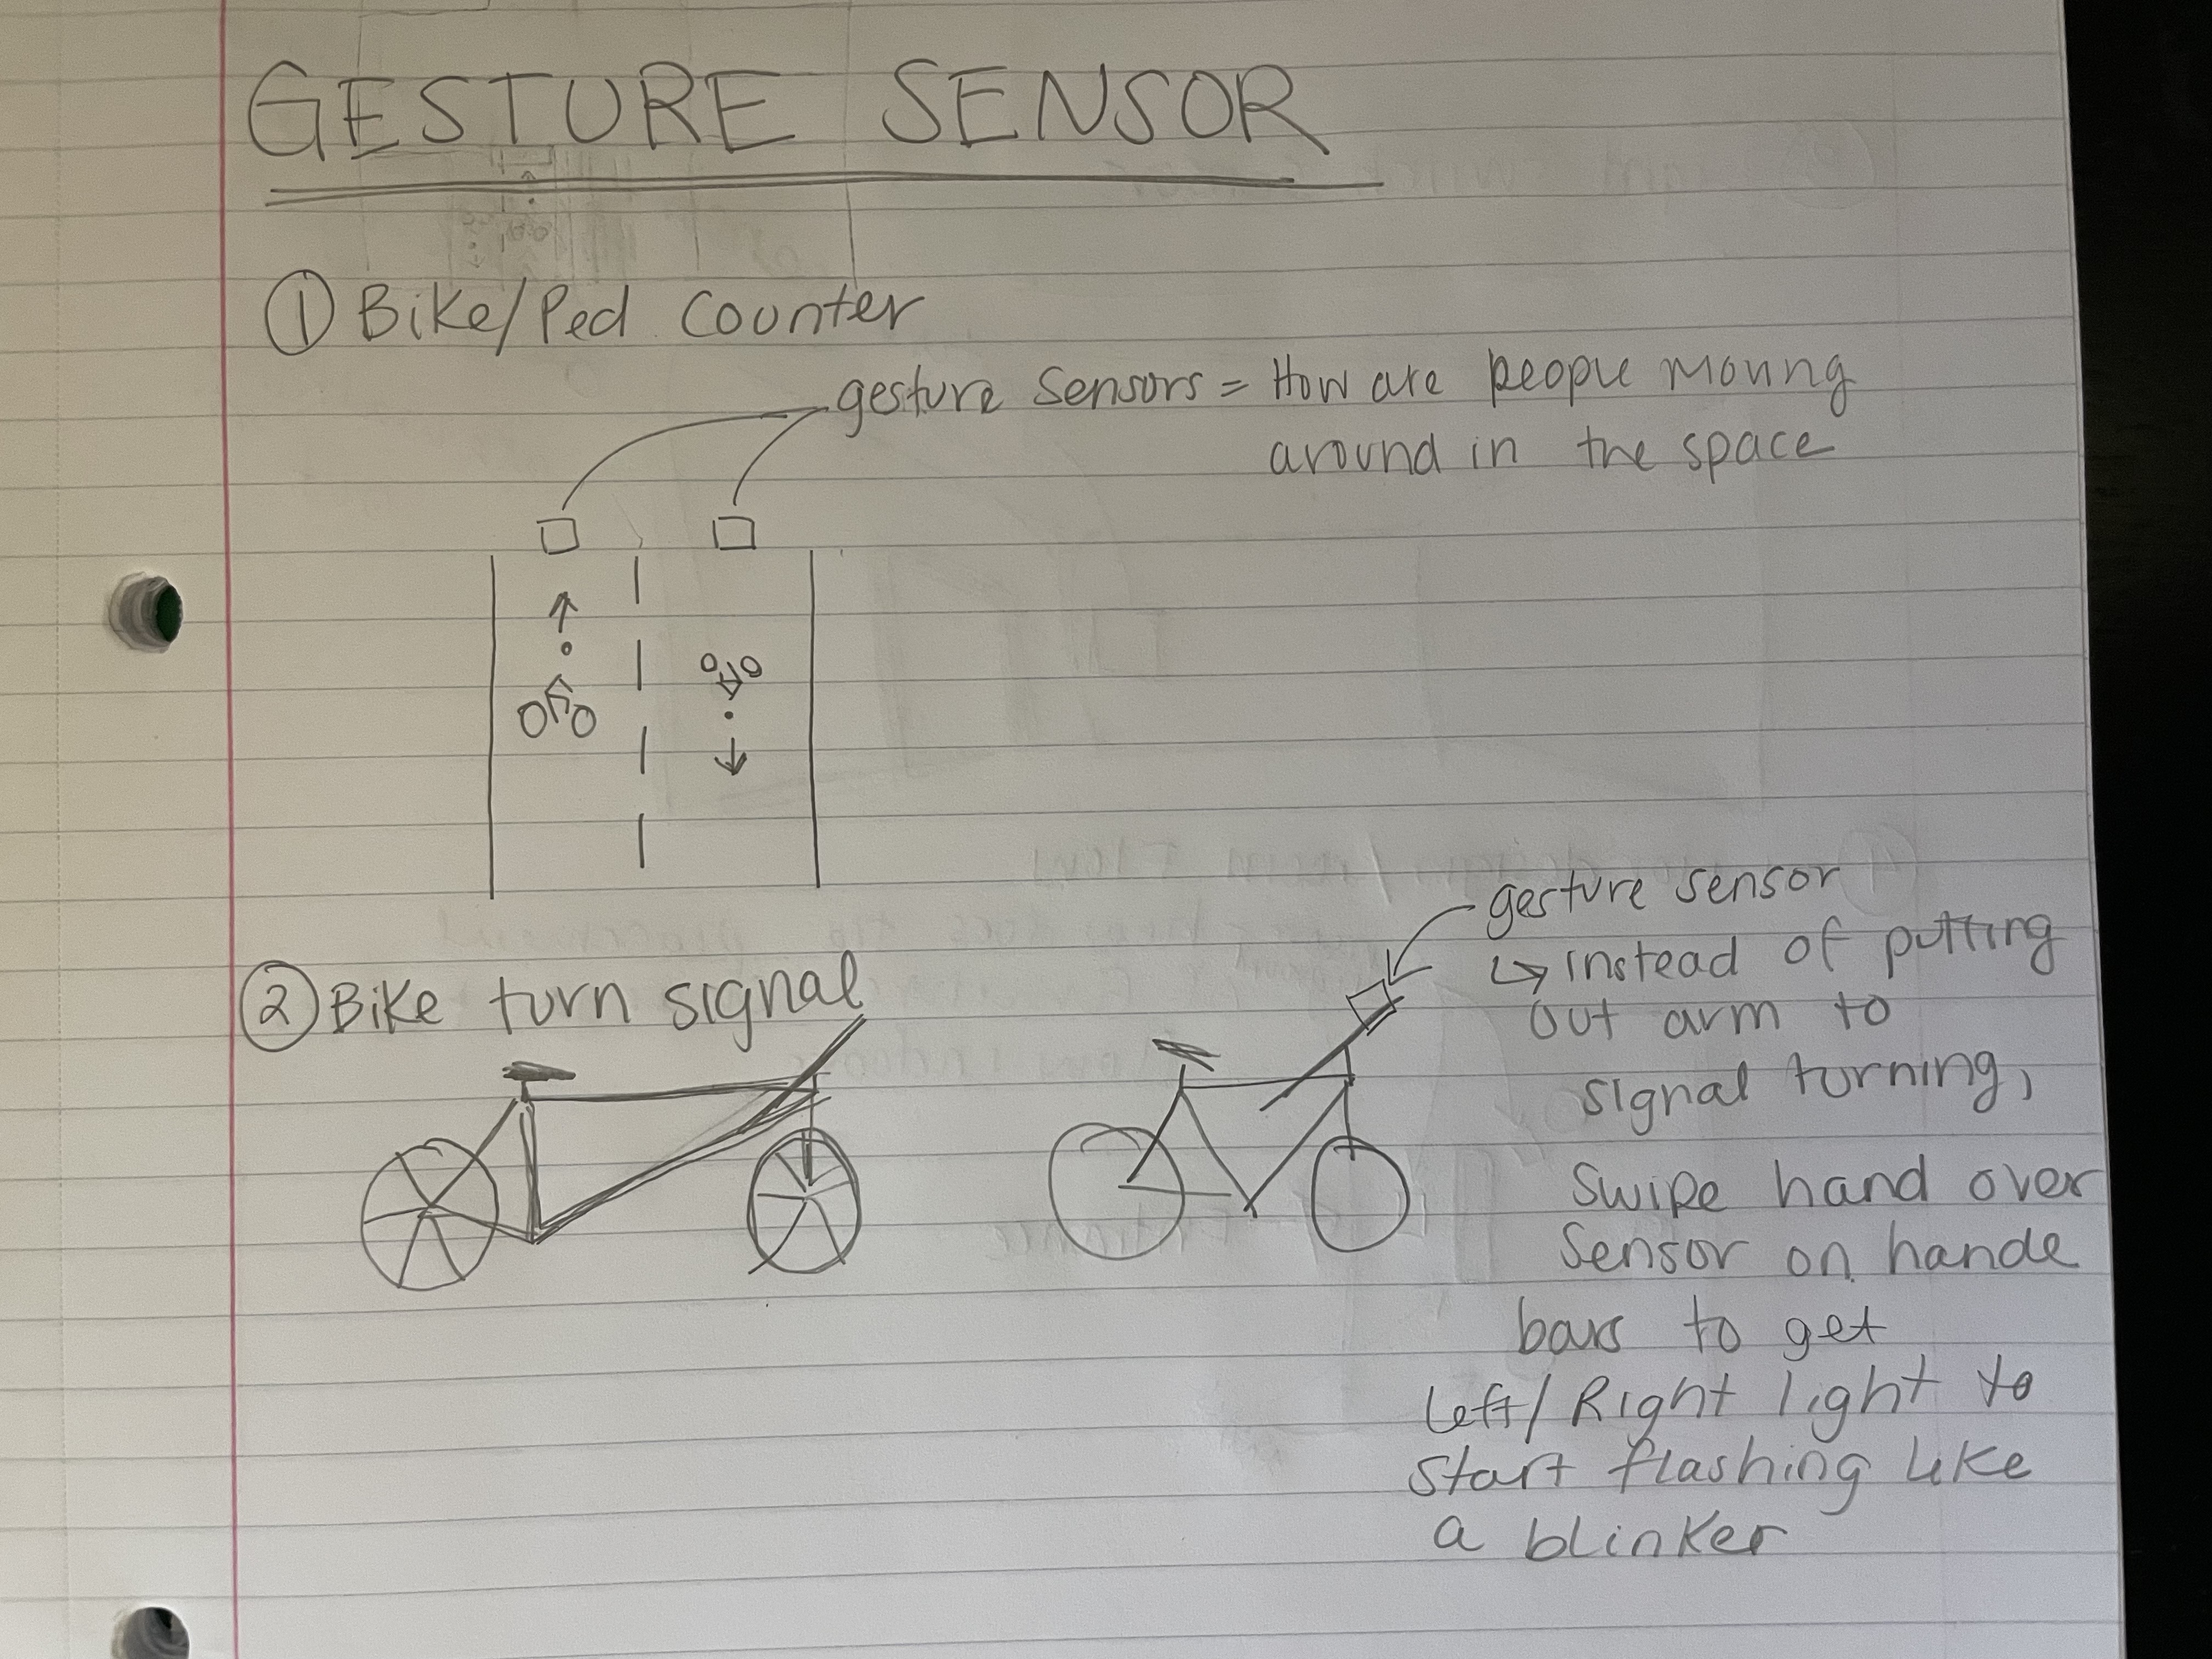 GESTURE SENSOR
① Bike/Ped Counter
gesture sensors = How are people moving
around in the space
② Bike turn signal
gesture sensor
↳ instead of putting
out arm to
signal turning,
Swipe hand over
Sensor on hande
bars to get
Left/Right light to
Start flashing like
a blinker